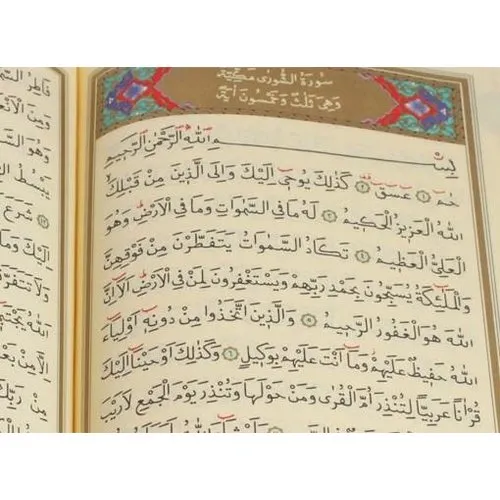 سورة الشورى مكية
وهي ثلث وخمسون آية
بِسْمِ اللهِ الرَّحْمٰنِ الرَّحِيمِ
حٰمٓ ۝١ عٓسٓقٓ ۝٢ كَذٰلِكَ يُوحِي اِلَيْكَ وَاِلَى الَّذِينَ مِنْ قَبْلِكَ
اللهُ الْعَزِيزُ الْحَكِيمُ ۝٣ لَهُ مَا فِي السَّمٰوَاتِ وَمَا فِي الْاَرْضِ وَهُوَ
الْعَلِيُّ الْعَظِيمُ ۝٤ تَكَادُ السَّمٰوَاتُ يَتَفَطَّرْنَ مِنْ فَوْقِهِنَّ
وَالْمَلٰئِكَةُ يُسَبِّحُونَ بِحَمْدِ رَبِّهِمْ وَيَسْتَغْفِرُونَ لِمَنْ فِي الْاَرْضِ اَلَا اِنَّ
اللهَ هُوَ الْغَفُورُ الرَّحِيمُ ۝٥ وَالَّذِينَ اتَّخَذُوا مِنْ دُونِهِ اَوْلِيَاءَ
اللهُ حَفِيظٌ عَلَيْهِمْ وَمَا اَنْتَ عَلَيْهِمْ بِوَكِيلٍ ۝٦ وَكَذٰلِكَ اَوْحَيْنَا اِلَيْكَ
قُرْاٰنًا عَرَبِيًّا لِتُنْذِرَ اُمَّ الْقُرٰى وَمَنْ حَوْلَهَا وَتُنْذِرَ يَوْمَ الْجَمْعِ لَا رَيْبَ
فَاطِرُ
وَمِنَ الْاَنْعَ
وَهُوَ
يَبْسُطُ
شَرَعَ
اِلَيْكَ وَمَا
وَلَا تَتَفَرَّ
اَللهُ يَجْتَبِي
اِلَّا مِنْ بَعْ
مِنْ رَبِّكَ